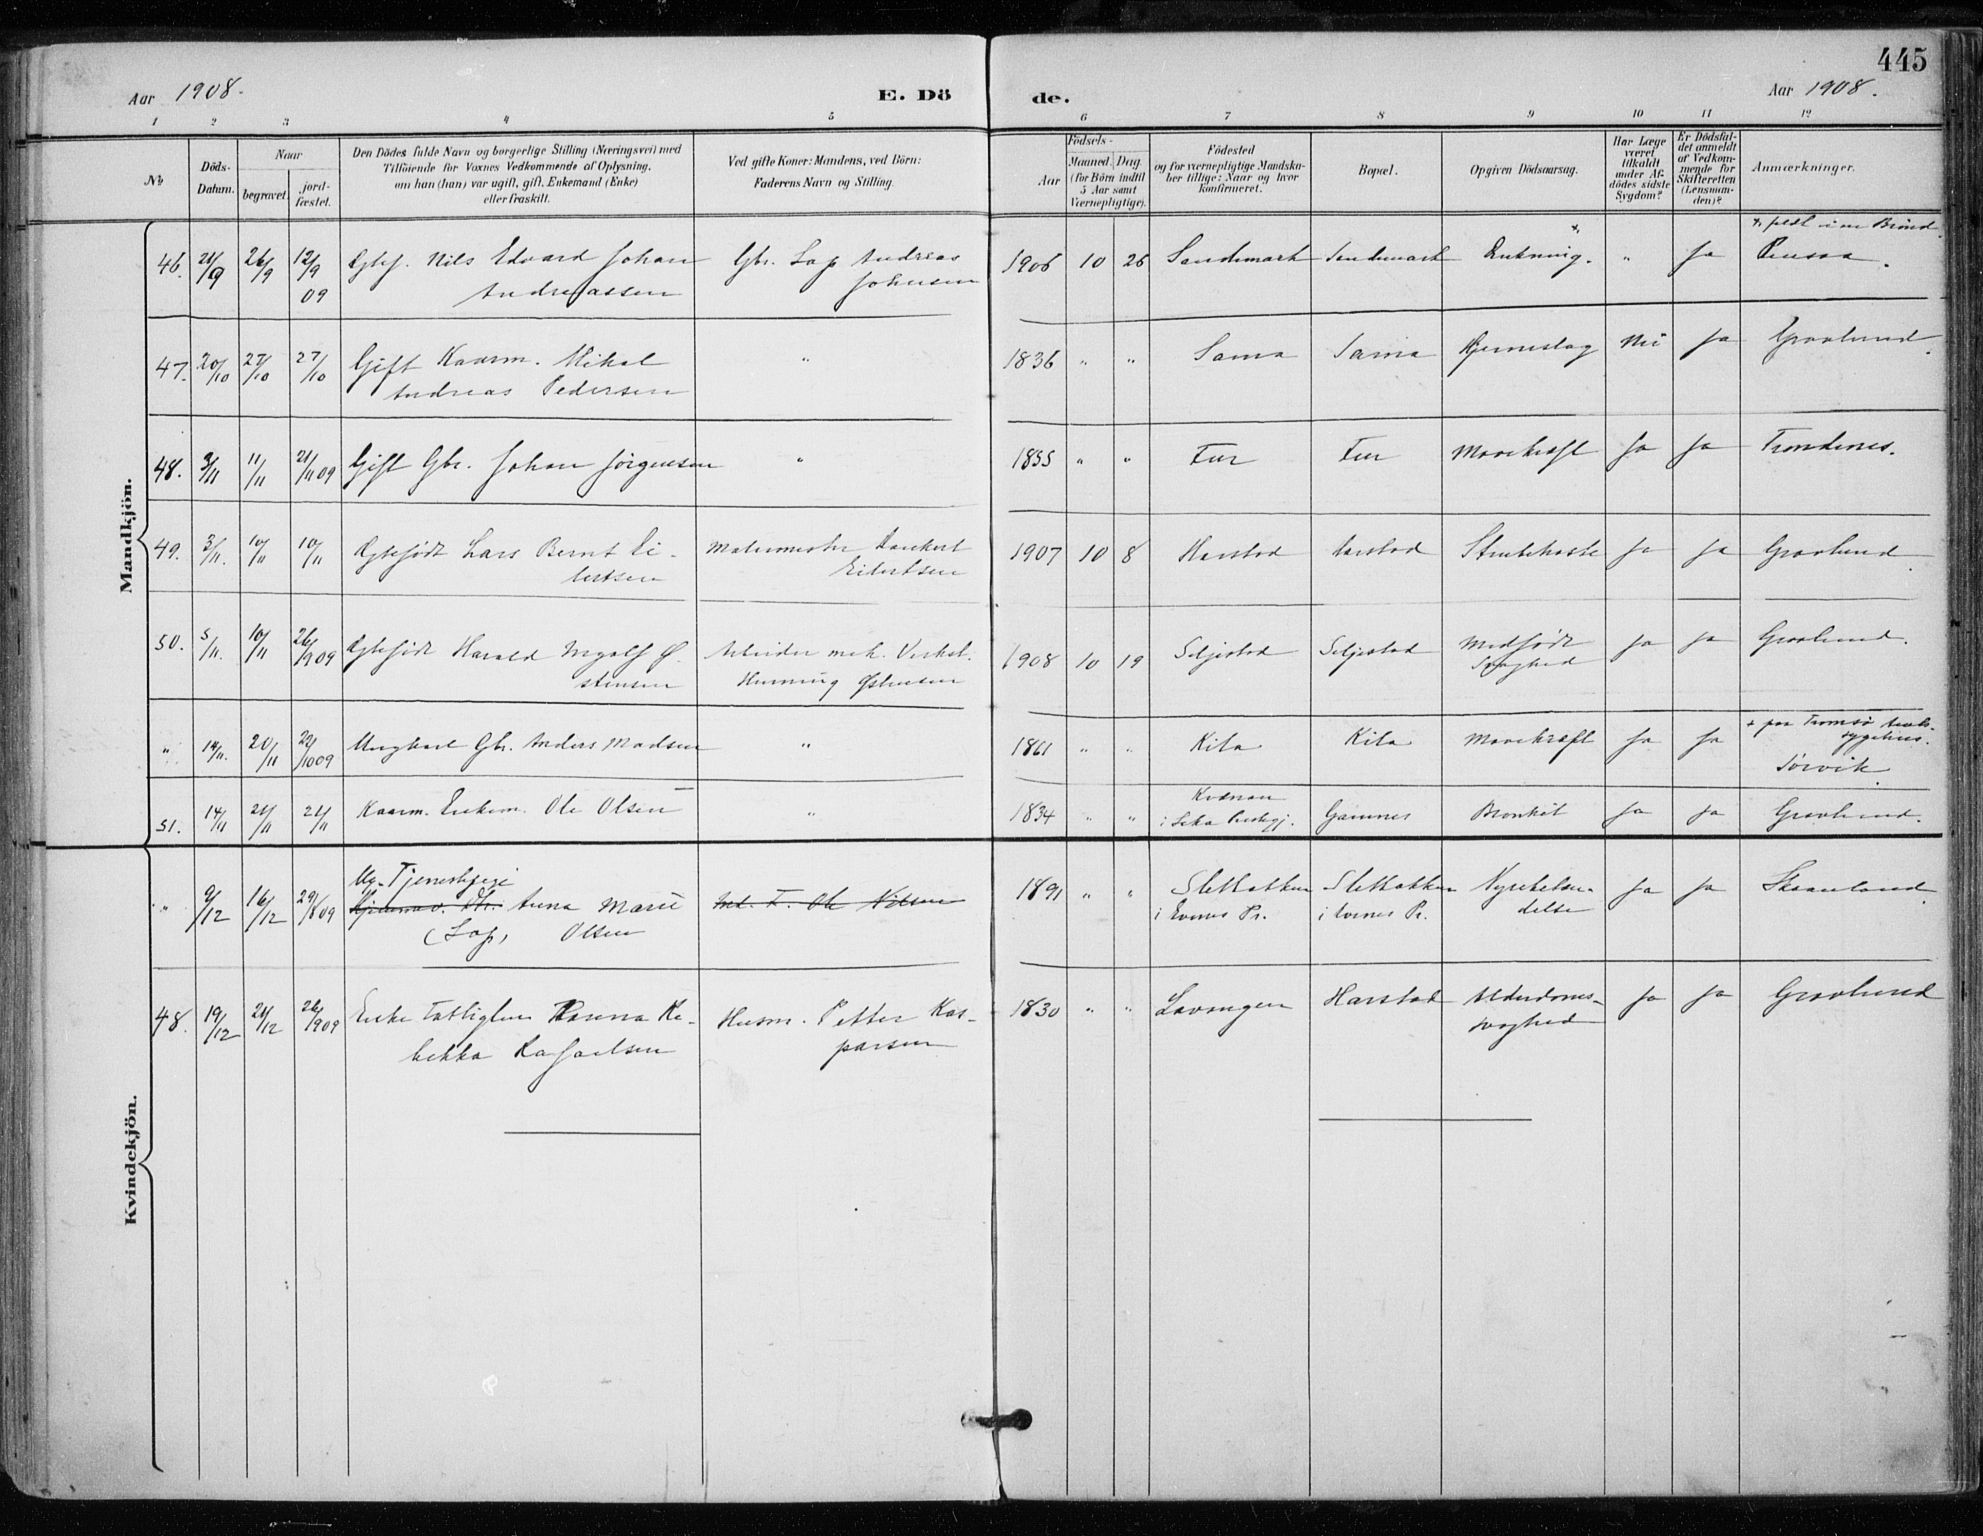 445
Aar 1908. E. Dö de. Aar 1908.
1 2 3 4 5 6 7 8 9 10 11 12
No
Döds-Datum.
Naar
begravet.
jord-fæstet.
Den Dödes fulde Navn og borgerlige Stilling (Næringsvei) med
Tilföiende for Voxnes Vedkommende af Oplysning,
om han (hun) var ugift, gift, Enkemand (Enke)
eller fraskilt.
Ved gifte Koner: Mandens, ved Börn:
Faderens Navn og Stilling.
Födsels-
Aar
Maaned. Dag.
(for Börn indtil
5 Aar samt
Værnepligtige).
Födested
og for værnepligtige Mandska-
ber tillige: Naar og hvor
konfirmeret.
Bopæl.
Opgiven Dödsaarsag.
Har Læge
været
tilkaldt
under Af-
dödes sidste
Sygdom?
Er Dödsfal-
det anmeldt
af Vedkom-
mende for
Skifteretten
(Lensman-
den)?
Anmærkninger.
Mandkjön.
46. 21/9 26/9 12/9 09 Ægtef. Nils Edvard Johan Andreassen Gbr. Lap Andreas Johnsen 1906 10 26 Sandemark Sandemark " Ja i en Brønd
47. 20/10 27/10 27/10 Gift Kaarm. Mikal Andreas Pedersen " 1836 " " Sama Sama Hjerneslag Nei Ja Gravlund.
48. 3/11 11/11 21/11 09 Gift Gbr. Johan Jørgensen " 1835 " " Fur Fur Mavekræft Ja Ja Trondenes.
49. 3/11. 10/11 10/11 Ægtefødt Lars Bernt Ei-
lertsen Eilertsen 1907 10 8 Harstad Harstad Strubehoste Ja Ja Gravlund.
50. 5/11. 10/11 26/9 09 Ægtefødt Harald Ingolf Ø-
stensen Arbeider mek. Verkst. Henning Østensen 1908 10 19 Seljestad Seljestad Medfødt Svaghed Ja Ja Gravlund.
" 14/11. 20/11 22/10 09 Ungkarl Gbr. Anders Madsen " 1861 " " Kila Kila Mavekræft Ja Ja + paa Tromsø
sygehus.
Sørvik.
51. 14/11 21/11 21/11 Kaarm. Enkem. Ole Olsen " 1834 " " i Leka Prestegj. Gamnes Bronkit Ja Ja Gravlund.
Kvindekjön.
" 9/12 16/12 29/8 09 Ug. Tjenestepige
Anna Marie
(Lap) Olsen Ole Nilsen 1891 " " Sletbakken
i Evenes Pr. Sletbakken
i Evenes Pr. Nyrebetæn-
delse Ja Ja Skaanland.
48. 19/12 21/12 26/9 09 Enke Fattiglem Karena Re-
bekka Rafaelsen Husm. Petter Kas-
parsen 1830 " " Lavangen Harstad Alderdoms-
svaghed Ja Ja Gravlund